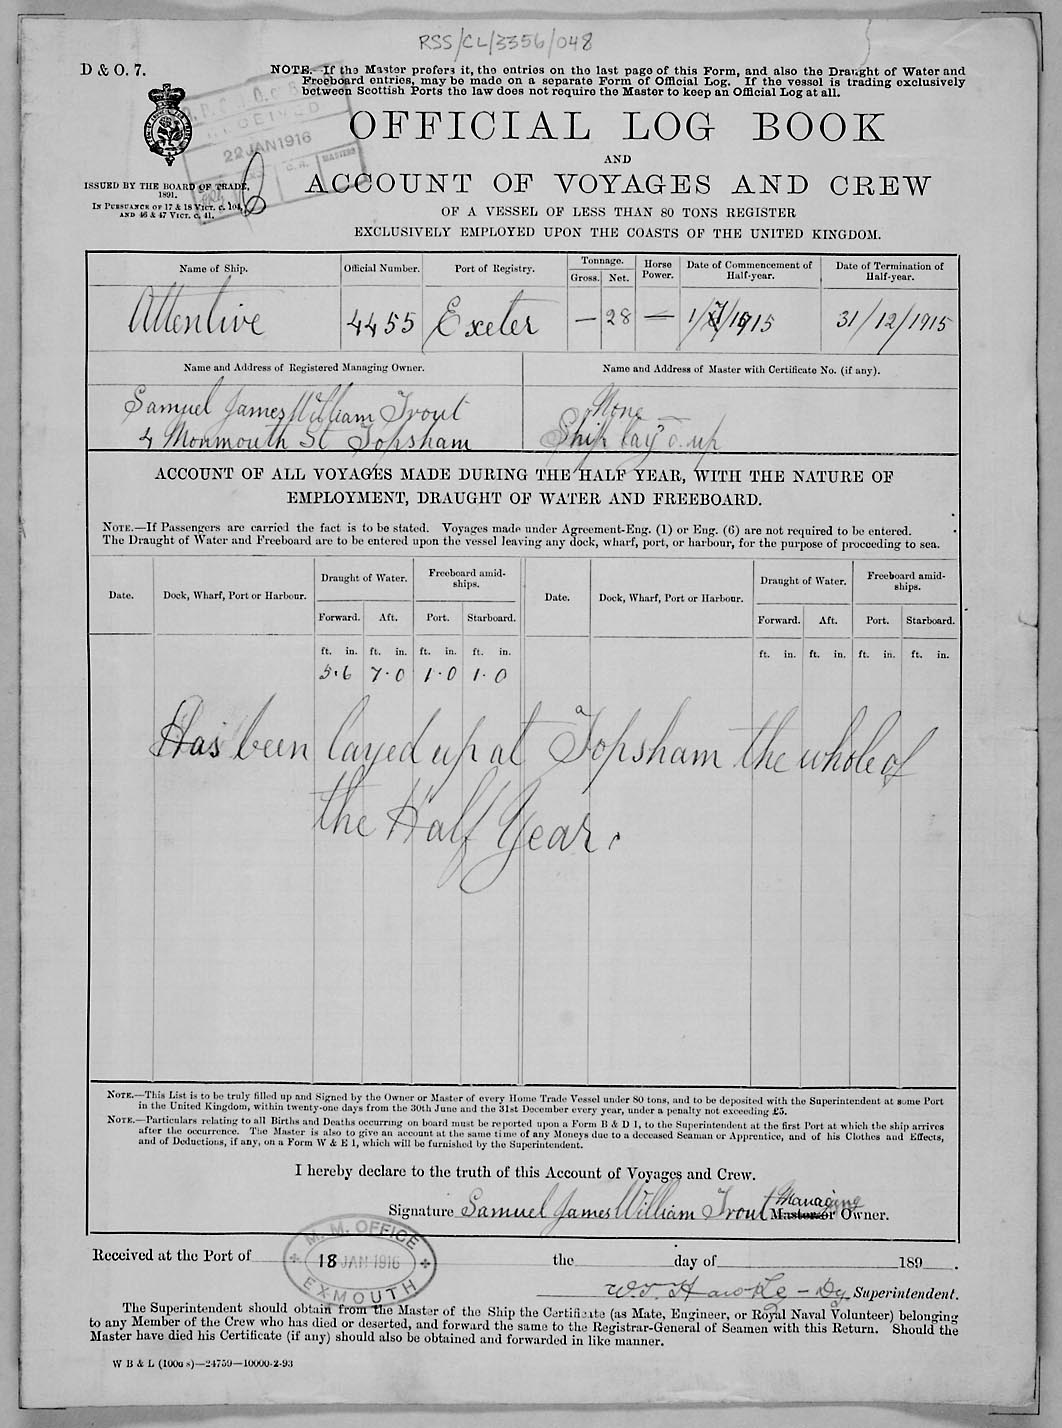 RSS/CL/3356/048
D & O. 7.
NOTE.—If the Master prefers it, the entries on the last page of this Form, and also the Draught of Water and
Freeboard entries, may be made on a separate Form of Official Log. If the vessel is trading exclusively
between Scottish Ports the law does not require the Master to keep an Official Log at all.
RECEIVED
22 JAN 1916
C. R.
MASTERS
OFFICIAL LOG BOOK
AND
ACCOUNT OF VOYAGES AND CREW
OF A VESSEL OF LESS THAN 80 TONS REGISTER
EXCLUSIVELY EMPLOYED UPON THE COASTS OF THE UNITED KINGDOM.
ISSUED BY THE BOARD OF TRADE,
1891.
IN PURSUANCE OF 17 & 18 VICT. C. 104,
AND 46 & 47 VICT. C. 41.
Name of Ship. Official Number. Port of Registry. Tonnage. Gross. Net. Horse Power. Date of Commencement of Half-year. Date of Termination of Half-year.
Attentive 4455 Exeter — 28 — 1/7/1915 31/12/1915
Name and Address of Registered Managing Owner. Name and Address of Master with Certificate No. (if any).
Samuel James William Trout None
4 Monmouth St Topsham Ship lay'd up
ACCOUNT OF ALL VOYAGES MADE DURING THE HALF YEAR, WITH THE NATURE OF
EMPLOYMENT, DRAUGHT OF WATER AND FREEBOARD.
NOTE.—If Passengers are carried the fact is to be stated. Voyages made under Agreement-Eng. (1) or Eng. (6) are not required to be entered.
The Draught of Water and Freeboard are to be entered upon the vessel leaving any dock, wharf, port, or harbour, for the purpose of proceeding to sea.
Date. Dock, Wharf, Port or Harbour. Draught of Water. Freeboard amid-ships. Date. Dock, Wharf, Port or Harbour. Draught of Water. Freeboard amid-ships.
Forward. Aft. Port. Starboard. Forward. Aft. Port. Starboard.
ft. in. ft. in. ft. in. ft. in. ft. in. ft. in. ft. in. ft. in.
5.6 7.0 1.0 1.0
Has been layed up at Topsham the whole of
the Half Year.
NOTE.—This List is to be truly filled up and Signed by the Owner or Master of every Home Trade Vessel under 80 tons, and to be deposited with the Superintendent at some Port
in the United Kingdom, within twenty-one days from the 30th June and the 31st December every year, under a penalty not exceeding £5.
NOTE.—Particulars relating to all Births and Deaths occurring on board must be reported upon a Form B & D 1, to the Superintendent at the first Port at which the ship arrives
after the occurrence. The Master is also to give an account at the same time of any Moneys due to a deceased Seaman or Apprentice, and of his Clothes and Effects,
and of Deductions, if any, on a Form W & E 1, which will be furnished by the Superintendent.
I hereby declare to the truth of this Account of Voyages and Crew.
Managing
Signature Samuel James William Trout Master or Owner.
M. M. OFFICE
18 JAN 1916
EXMOUTH
Received at the Port of the day of 189 .
Dy Superintendent.
The Superintendent should obtain from the Master of the Ship the Certificate (as Mate, Engineer, or Royal Naval Volunteer) belonging
to any Member of the Crew who has died or deserted, and forward the same to the Registrar-General of Seamen with this Return. Should the
Master have died his Certificate (if any) should also be obtained and forwarded in like manner.
W B & L (100c s)—24759—10000-2-93